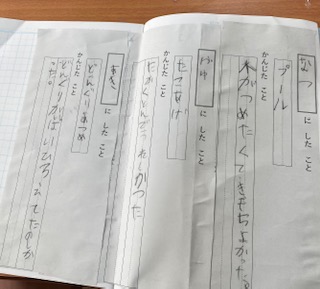 なつ にしたこと
プール
かんじたこと
水がつめたくてきもちよかった。
ふゆ にしたこと
たこあげ
かんじたこと
たかくとんでうれしかった
あき にしたこと
どんぐりあつめ
かんじたこと
どんぐりがいっぱいひろえてたのしか
った。